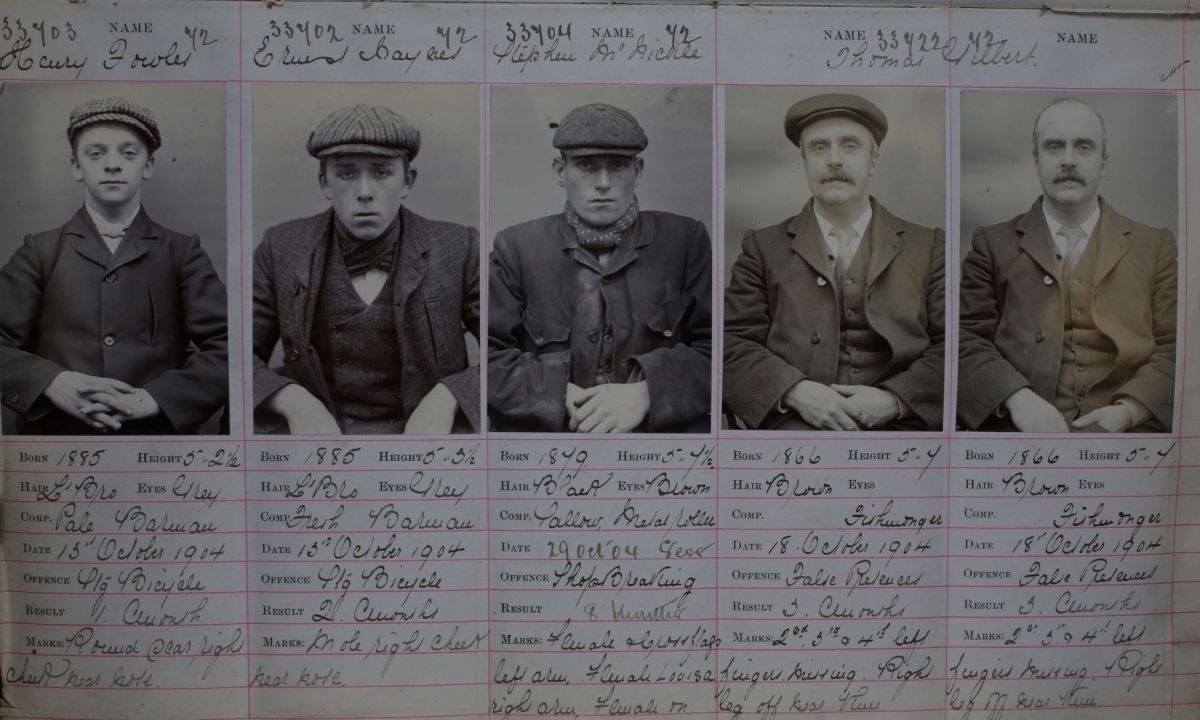 33703 NAME 72 33702 NAME 72 33704 NAME 72 NAME 33722 72 NAME
Henry Fowler Ernest Haynes Stephen McNickle Thomas Gilbert.
BORN 1885 HEIGHT 5-2½ BORN 1885 HEIGHT 5-3½ BORN 1879. HEIGHT 5-7½ BORN 1866 HEIGHT 5-7 BORN 1866 HEIGHT 5-7
HAIR Lt Bro EYES Grey HAIR Lt Bro EYES Grey HAIR Black EYES Brown HAIR Brown EYES HAIR Brown EYES
COMP. Pale Barman COMP. Fresh Barman COMP. Sallow, Metal roller COMP. Fishmonger COMP. Fishmonger
DATE 13th October 1904 DATE 13th October 1904 DATE 29 Oct 04 Sess DATE 18 October 1904 DATE 18th October 1904
OFFENCE Stg Bicycle OFFENCE Stg Bicycle OFFENCE ShopBreaking OFFENCE False Pretences OFFENCE False Pretences
RESULT 1. Cmonth. RESULT 2. Cmonths RESULT 8 Months RESULT 3. Cmonths RESULT 3. Cmonths
MARKS: Round scar right MARKS: Mole right cheek MARKS: Female & Crossflags MARKS: 2nd 3rd & 4th left MARKS: 2nd 3rd & 4th left
cheek near nose. near nose. left arm, Female Louisa fingers missing. Right fingers missing. Right
right arm, Female on leg off near knee. leg off near knee.